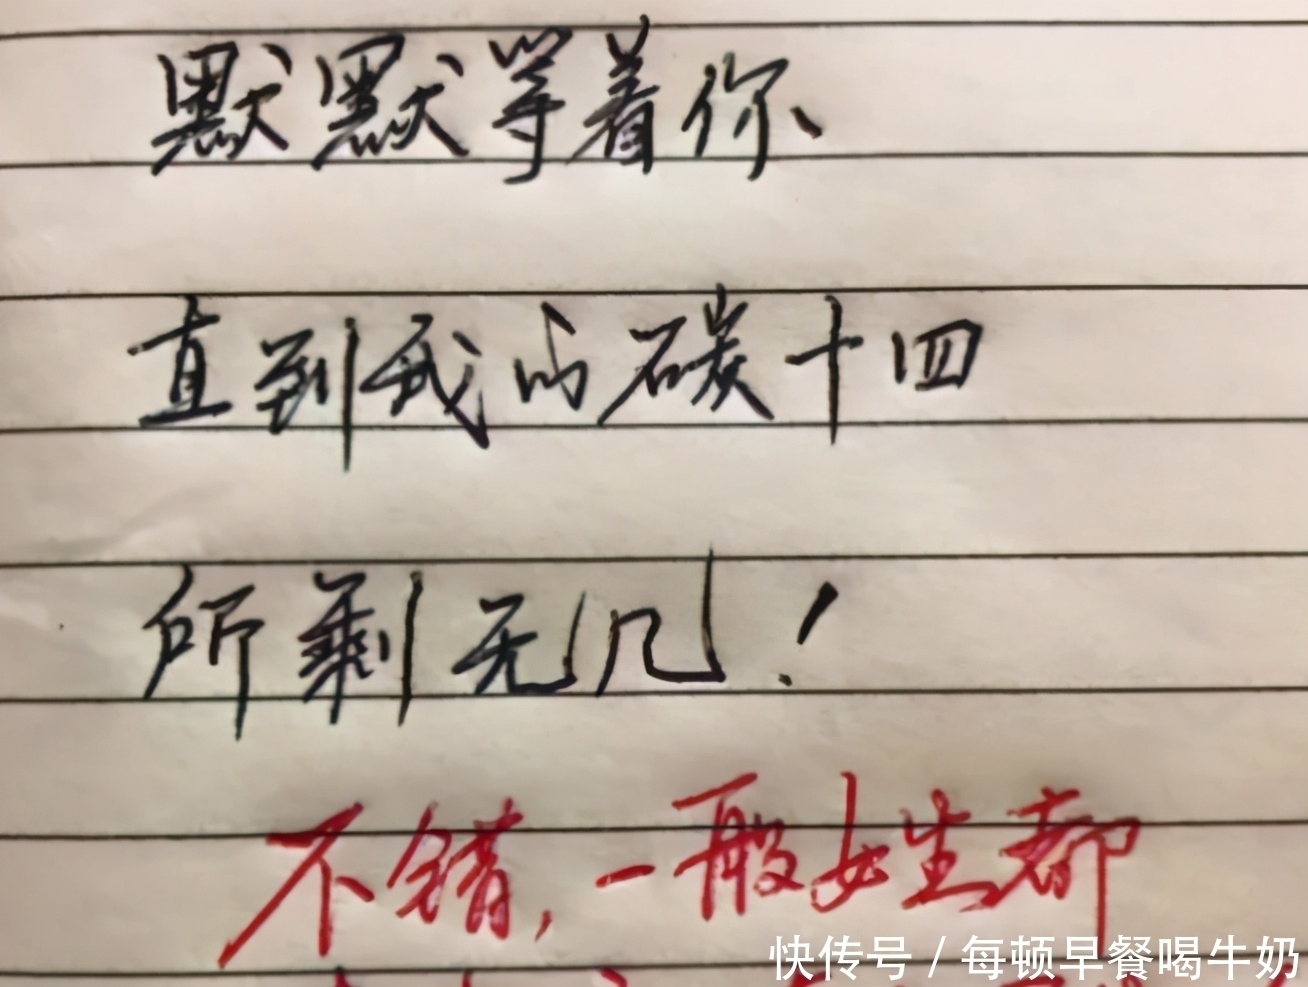 默默等着你
直到我的碳十四
所剩无几！
不错，一般女生都
快传号/每顿早餐喝牛奶